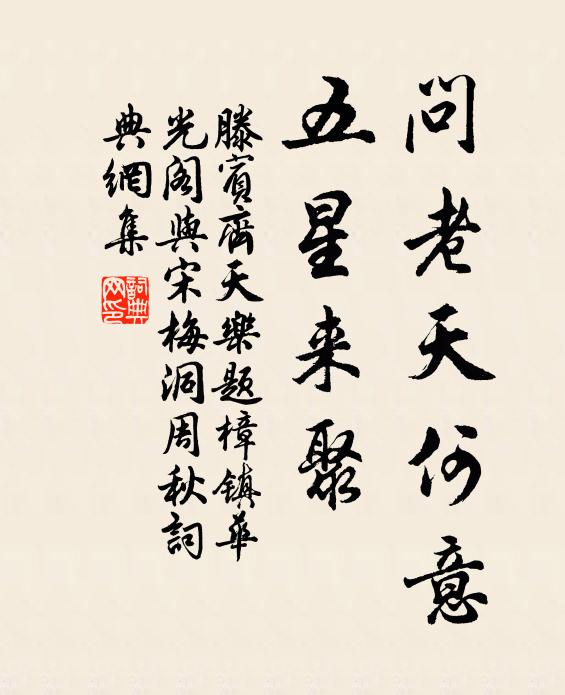 問老天何意
五星来聚
滕賓齊天樂題樟鎮華
光阁與宋梅洞周秋詞
典網集
詞典网印